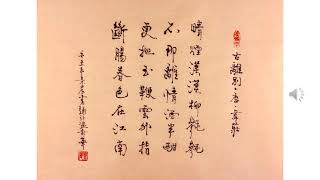 古離別·唐·韋莊
晴煙漠漠柳毿毿
不那離情酒半酣
更把玉鞭雲外指
斷腸春色在江南
辛丑